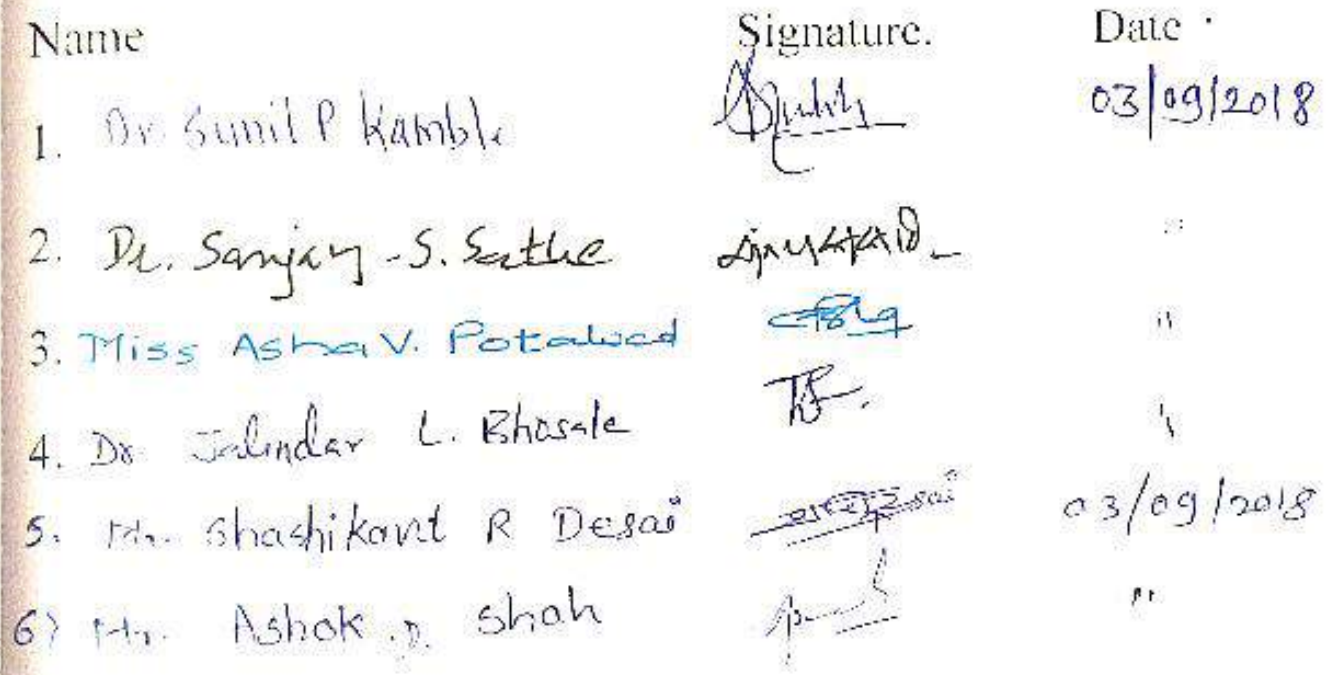 Name Signature. Date
1. Dr. Sunil P Kamble 03/09/2018
2. Dr. Sanjay S. Sathe "
3. Miss Asha V. Potalwad "
4. Dr Jalindar L. Bhosale "
5. Mr. Shashikant R Desai 03/09/2018
6) Mr. Ashok . D. Shah "